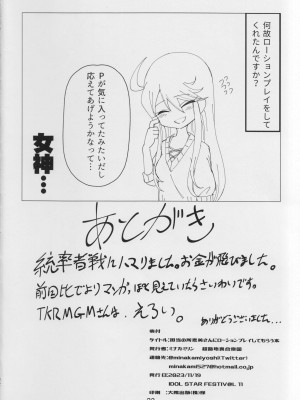 何故ローションプレイをして
くれたんですか?
フフッ
Pが気に入ってたみたいだし
応えてあげようかなって…
女神…
あとがき
統率者戦にハマりました。お金が飛びました。
前回比でよりマンガっぽく見えていたらさいわいです。
TKRMGMさんは、えろい。
ありがとうございました…
奥付
発行日2023/11/19
IDOL STAR FESTIV@L 11